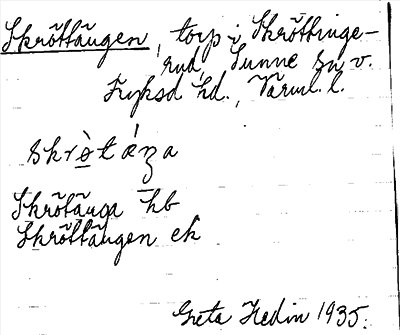 Skröttängen, torp i Skröttinge-
rud, Sunne sn v.
Fryksd hd., Värml. l.
skrò̱táŋa
Skrötänga hb
Skröttängen ek
Greta Hedin 1935.